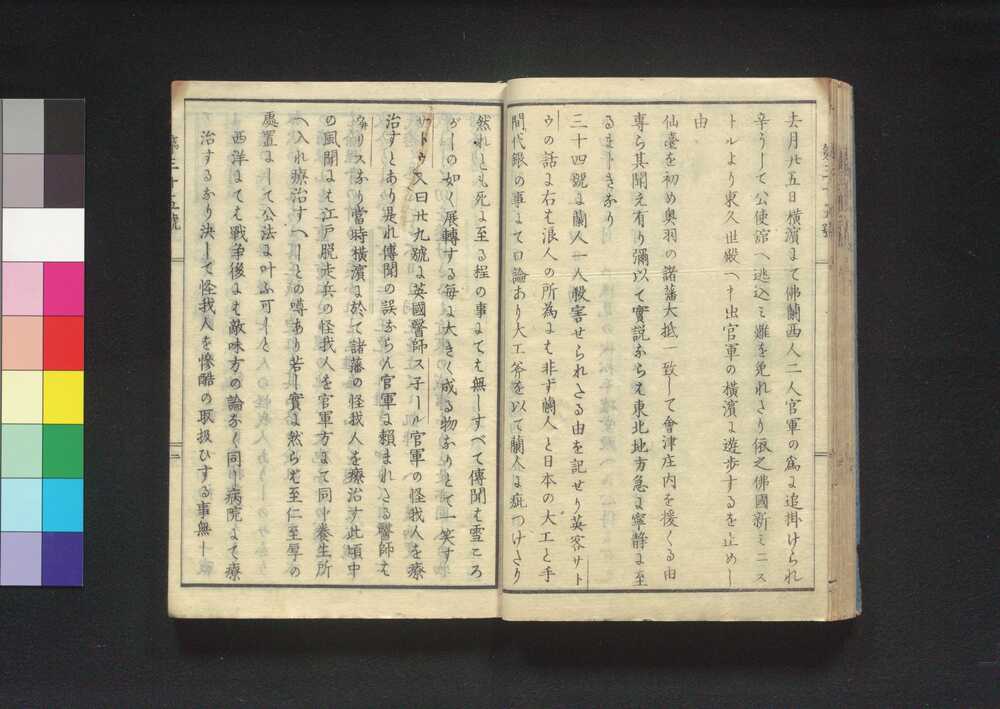 去月廿五日横濱にて佛蘭西人二人官軍の爲に追掛けられ
辛うして公使舘へ逃込ミ難を免れたり依之佛國新ミニス
トルより東久世殿へ申出官軍の横濱に遊歩するを止めし
由
仙臺を初め奥羽の諸藩大抵一致して會津庄内を援くる由
専ら其聞え有り彌以て實説ならえ東北地方急に寧静に至
るましきなり
三十四號に蘭人一人殺害せられたる由を記せり英客サト
ウの話に右も浪人の所為にも非ず蘭人と日本の大工と手
間代銀の事にて口論あり大工斧を以て蘭人に疵つけたり
然れとも死に至る程の事にても無しすべて傳聞も雪ころ
がしの如く展轉する毎に大きく成る物なりとて一笑す
サトウ又曰廿九號に英國醫師ス子ール官軍の怪我人を療
治すとあり是れ傳聞の誤ならん官軍に頼まれたる醫師も
ウリスなり當時横濱に於て諸藩の怪我人を療治す此頃中
の風聞にも江戸脱走兵の怪我人を官軍方にて同しく養生所
へ入れ療治すへしとの噂あり若し實に然らも至仁至厚の
處置にして公法に叶ふ可しと
西洋にても戦争後にも敵味方の論なく同し病院にて療
治するなり決して怪我人を惨酷の取扱ひする事無し
第三十五號
二